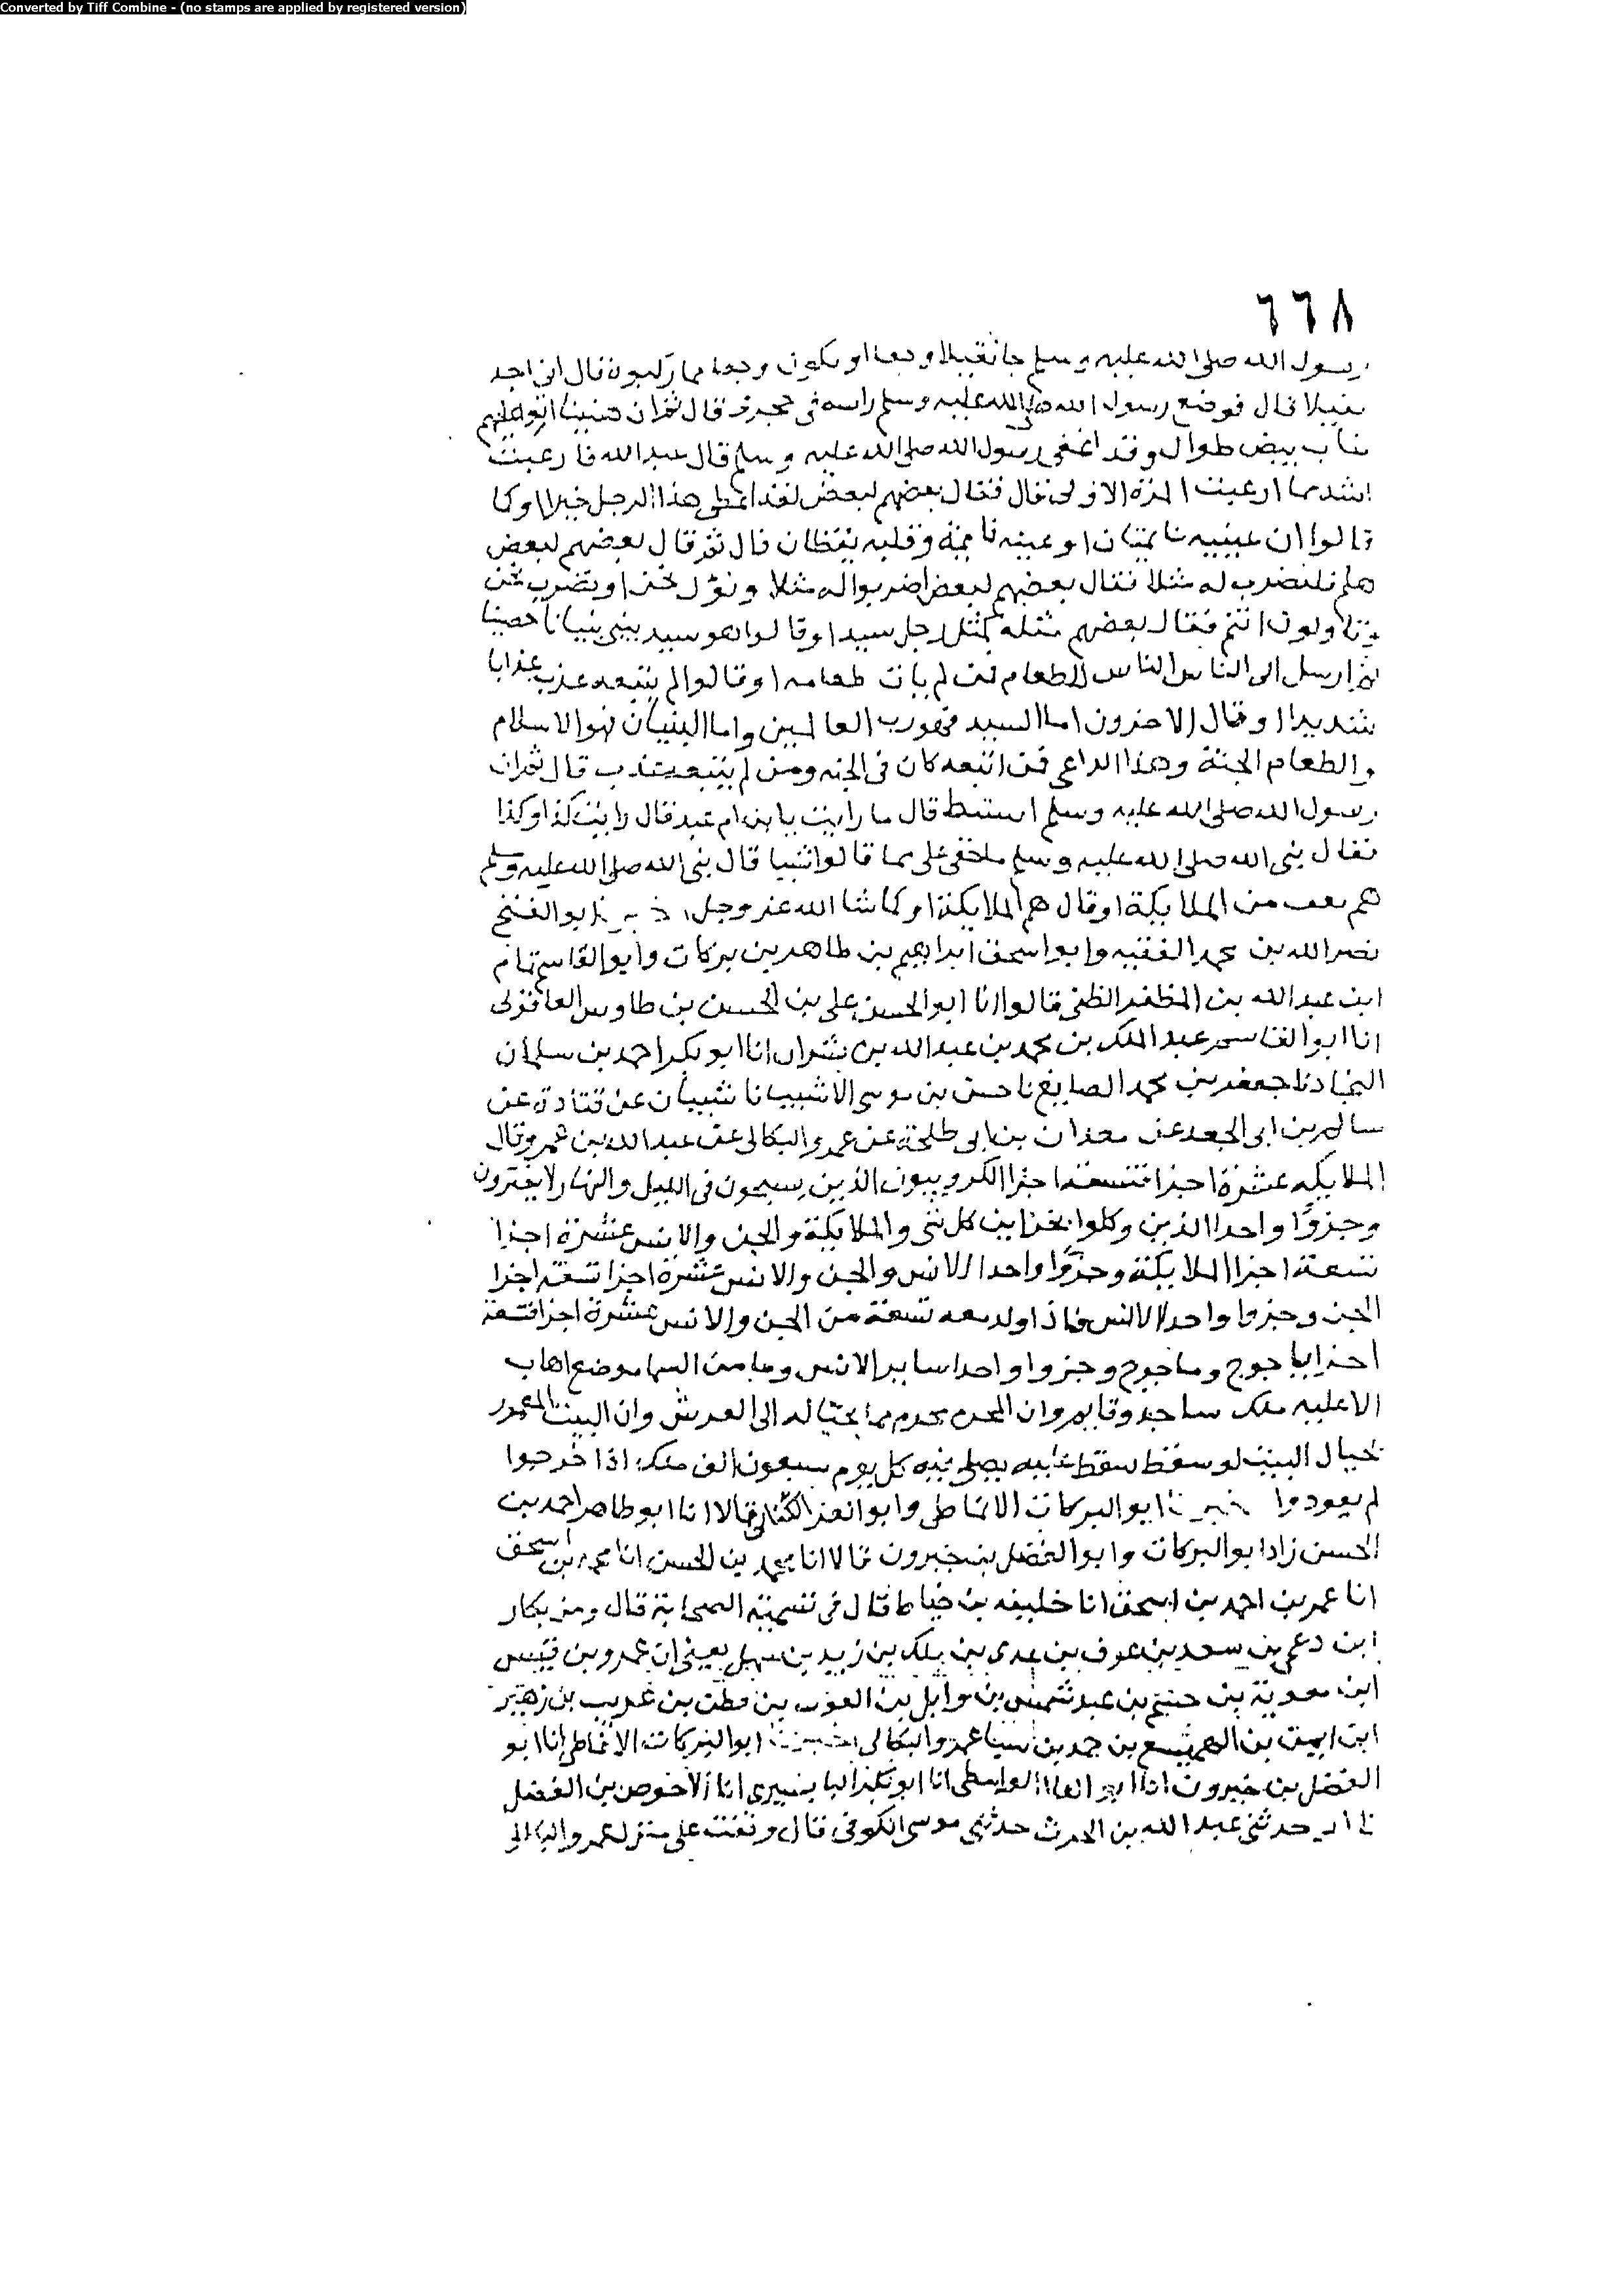 Converted by Tiff Combine - (no stamps are applied by registered version)
٦٦٨
رسول الله صلى الله عليه وسلم جا ثقيلا وجعا او يكون وجعا مما ركبوه قال انى اجد
ثقيلا قال فوضع رسول الله صلى الله عليه وسلم راسه فى حجرى قال ثم ان هنينا اتوا عليهم
ثياب بيض طوال وقد اغفى رسول الله صلى الله عليه وسلم قال عبد الله فارعبت
اشد مما ارعبت المرة الاولى قال فقال بعضهم لبعض لقد اعطى هذا الرجل خيرا او كما
قالوا ان عينيه نايمتان او عينه نايمة وقلبه يقظان قال ثم قال بعضهم لبعض
هلم فلنضرب له مثلا فقال بعضهم لبعض اضربوا له مثلا ونؤل نحن او نضرب نحن
وتاولون انتم فقال بعضهم مثله كمثل رجل سيد او قالوا هو سيد بنى بنيانا حصينا
ثم ارسل الى الناس الناس للطعام فمن لم يات طعامه او قالوا لم يتبعه عذب عذابا
شديدا او قال الاخرون اما السيد فهو رب العالمين واما البنيان فهو الاسلام
والطعام الجنة وهذا الداعى فمن اتبعه كان فى الجنه ومن لم يتبعه عذب قال ثم ان
رسول الله صلى الله عليه وسلم استيقظ قال ما رايت يا بن ام عبد قال رايت كذا وكذا
فقال نبى الله صلى الله عليه وسلم ما خفى على مما قالوا شيا قال نبى الله صلى الله عليه وسلم
هم نفر من الملايكة او قال هم الملايكة او كما شا الله عز وجل اخبرنا ابو الفتح
نصر الله بن محمد الفقيه وابو اسحق ابراهيم بن طاهر بن بركات وابو القاسم تمام
ابن عبد الله بن المظفر الظنى قالوا انا ابو الحسن على بن الحسن بن طاوس العاقولى
انا ابو القاسم عبد الملك بن محمد بن عبد الله بن بشران انا ابو بكر احمد بن سلمان
النجاد نا جعفر بن محمد الصايغ نا حسن بن موسى الاشيب نا شيبان عن قتادة عن
سالم بن ابى الجعد عن معدان بن ابى طلحة عن عمرو البكالى عن عبد الله بن عمرو قال
الملايكه عشرة اجزا فتسعة اجزا الكروبيون الذين يسبحون فى الليل والنهار لا يفترون
وجزوا واحدا الذين وكلوا بخزاين كل شى والملايكة والجن والانس عشرة اجزا
تسعة اجزا الملايكة وجزوا واحدا الانس والجن والانس عشرة اجزا تسعة اجزا
الجن وجزوا واحدا الانس فاذا ولد معه تسعة من الجن والانس عشرة اجزا فتسعة
اجزا ياجوج وماجوج وجزوا واحدا ساير الانس وما من السما موضع اهاب
الا عليه ملك ساجد وقايم وان الحرم محرم مما بحياله الى العرش وان البيت المعمور
بحيال البيت لو سقط سقط عليه يصلى فيه كل يوم سبعون الف ملك اذا خرجوا
لم يعودوا اخبرنا ابو البركات الانماطى وابو العز الكتانى قالا انا ابو طاهر احمد بن
الحسن زاد ابو البركات وابو الفضل بن خيرون قالا انا محمد بن الحسن انا محمد بن اسحق
انا عمر بن احمد بن اسحق انا خليفه بن خياط قال فى تسمية الصحابة قال ومن بكار
ابن دعمى بن سعد بن عوف بن عدى بن ملك بن زيد بن سهل يعنى ابن عمرو بن قيس
ابن معوية بن حشم بن عبد شمس بن وايل بن الغوث بن قطن بن عريب بن زهير
ابن ايمن بن الهميسع بن حمير بن سبا عمرو البكالى اخبرنا ابو البركات الانماطى انا ابو
الفضل بن خيرون انا ابو العلا الواسطى انا ابو بكر البابسيرى انا الاحوص بن الفضل
نا ابى حدثنى عبد الله بن الحرث حدثنى موسى الكوفى قال وقفت على منزل عمرو البكالى